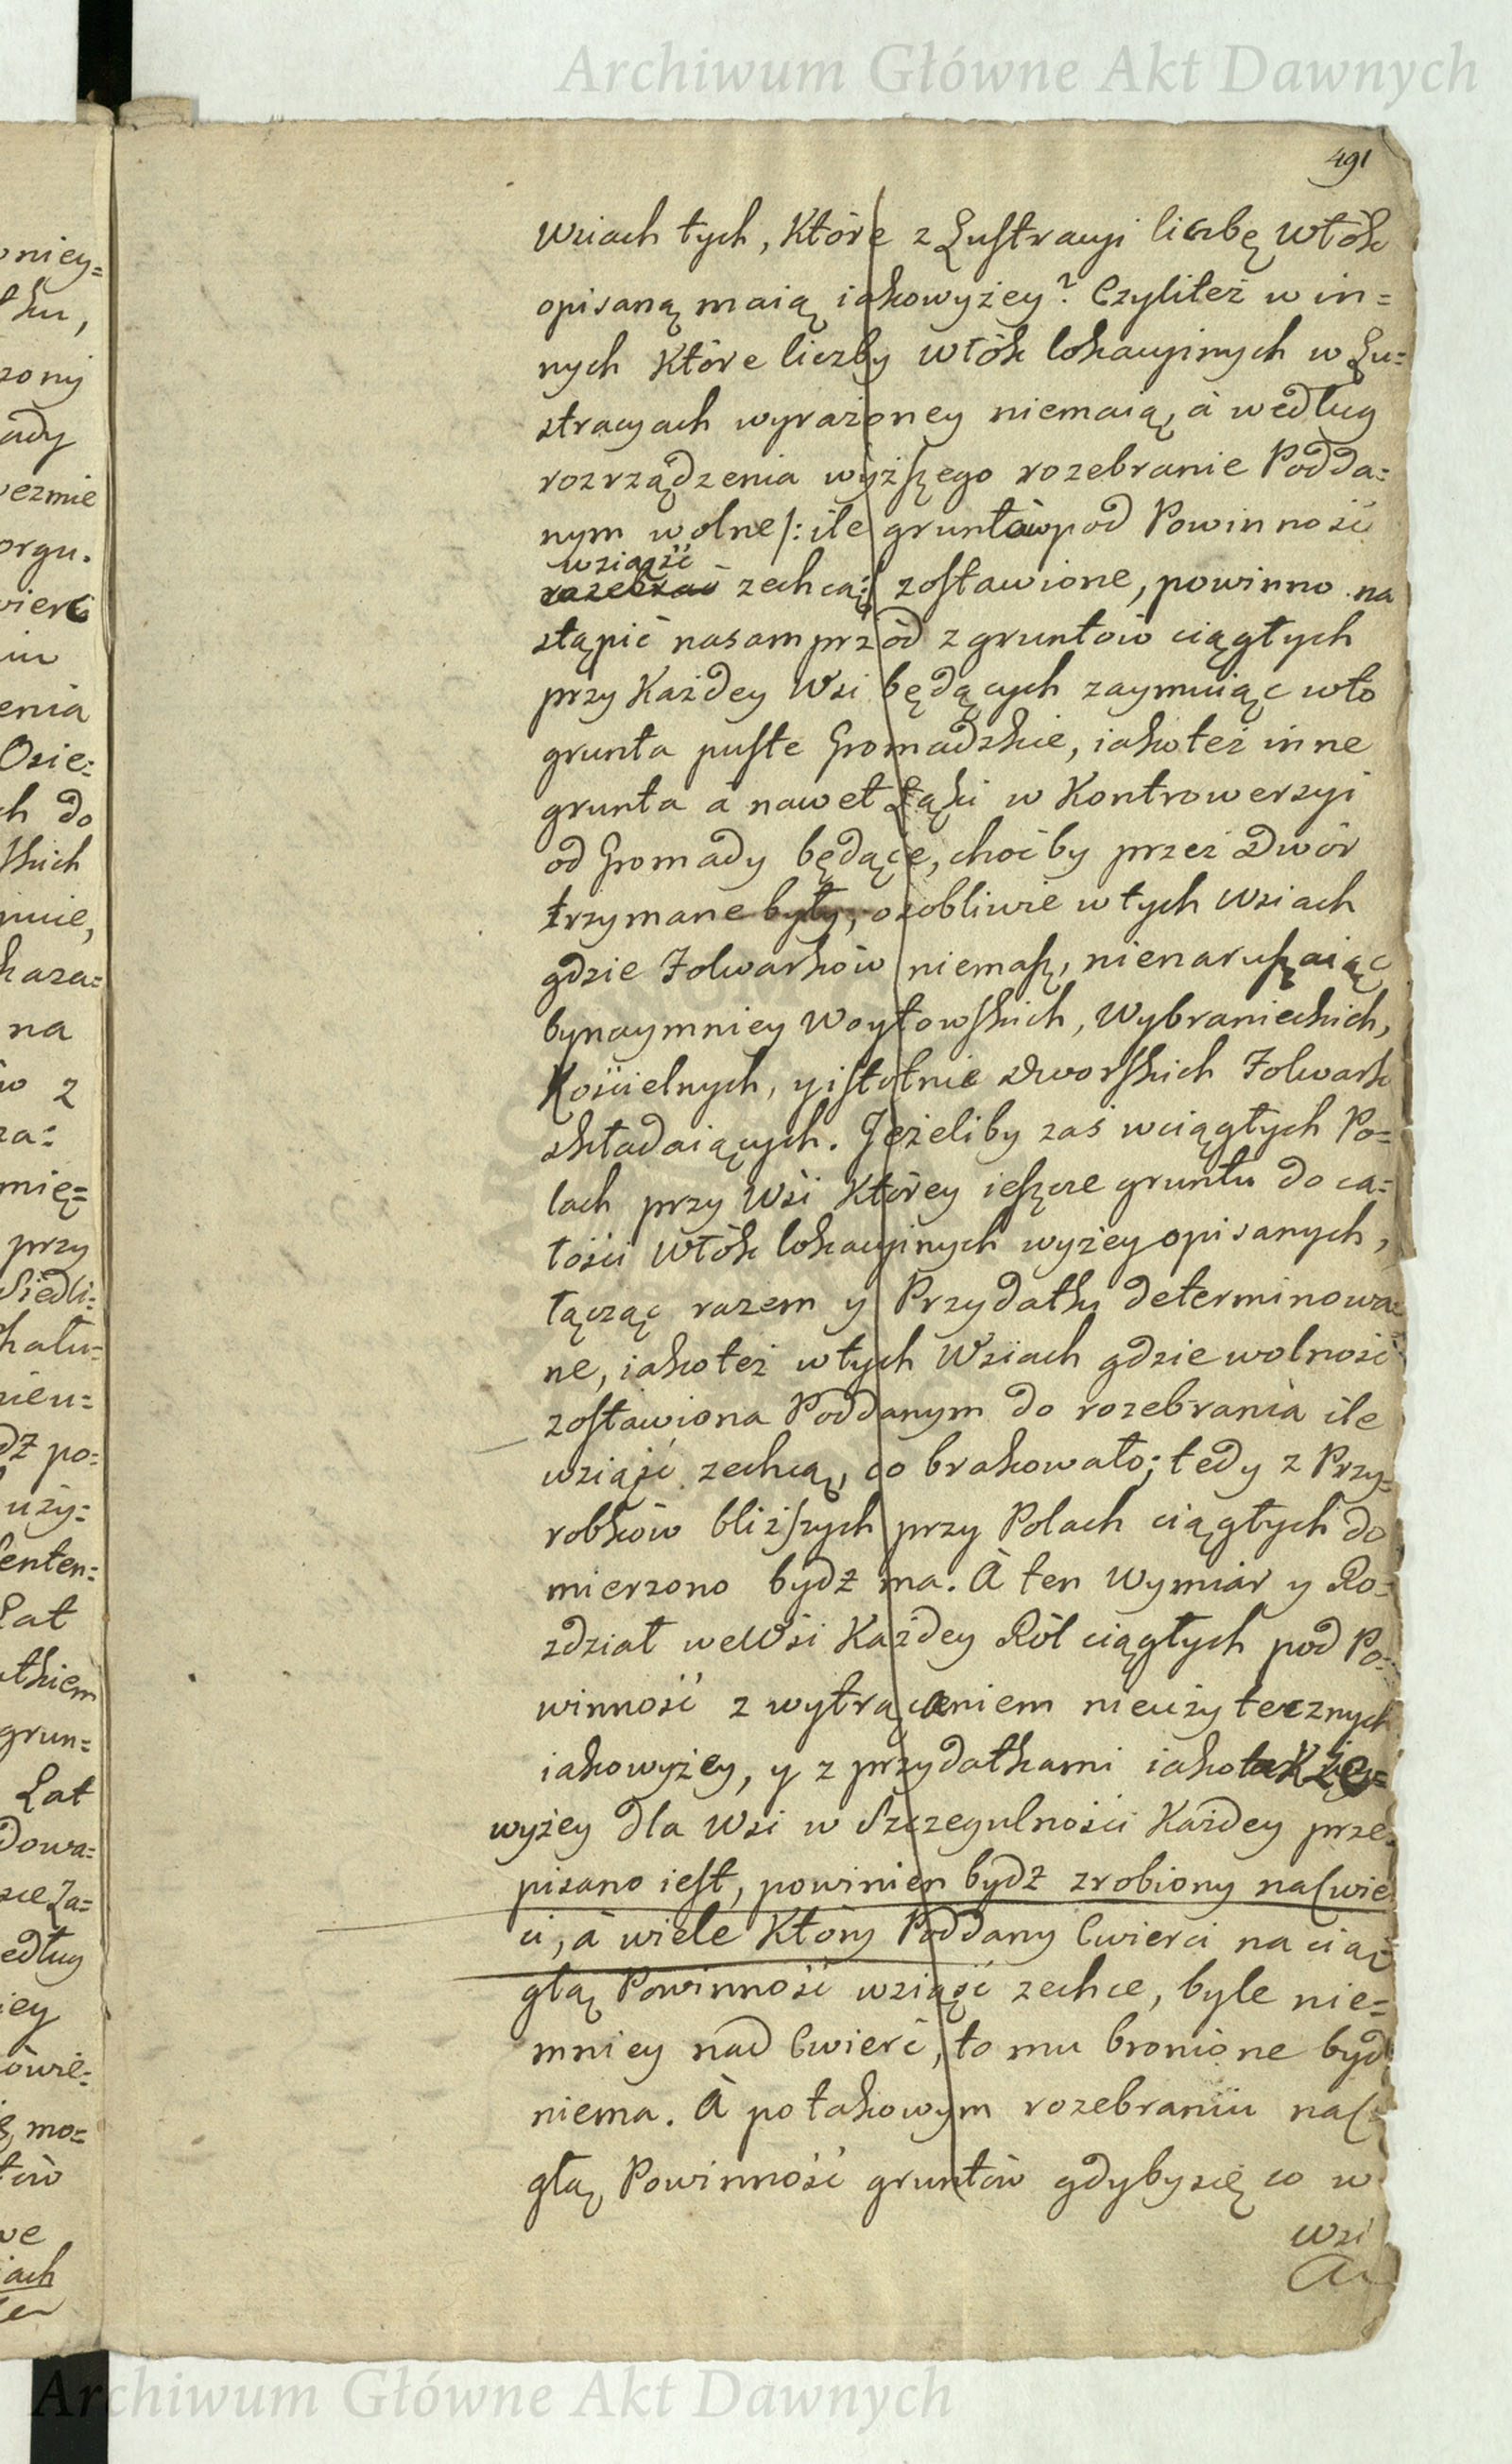 Archiwum Główne Akt Dawnych
491
Wsiach tych, Które z Lustracyi liczbę Włók
opisaną maią iakowyżey? Czyliteż w in=
nych Które liczby Włók lokacyinych w Lu=
stracyach wyrażoney niemaią, à według
rozrządzenia wyższego rozebranie Podda=
nym wolne /: ile gruntów pod Powinność
wziąść
rozebrać zechcą :/ zostawione, powinno na
stąpić nasamprzód z gruntów ciągłych
przy Każdey Wsi będących zaymuiąc wto
grunta puste Gromadzkie, iakoteż inne
grunta a nawet Łąki w Kontrowersyi
od Gromady będące, choćby przez Dwór
trzymane były, osobliwie w tych Wsiach
gdzie Folwarków niemasz, nienaruszaiąc
bynaymniey Woytowskich, Wybranieckich,
Kościelnych, y istotnie Dworskich Folwark
składaiących. Jeżeliby zaś wciągłych Po=
lach przy Wsi Którey ieszcze gruntu do ca=
łości Włók lokacyinych wyżey opisanych,
łącząc razem y Przydatki determinowa=
ne, iakoteż w tych Wsiach gdzie wolność
zostawiona Poddanym do rozebrania ile
wziąść zechcą, co brakowało; tedy z Przy=
robków bliższych przy Polach ciągłych do
mierzono bydź ma. À ten Wymiar y Ro=
zdział weWsi Każdey Ról ciągłych pod Po=
winność z wytrąceniem nieużytecznych
iakowyżey, y z przydatkami iakotakże=
wyżey dla Wsi w Szczegulności Każdey prze=
pisano iest, powinien bydź zrobiony na Cwie
ci, à wiele Który Poddany Cwierci na cią
głą Powinność wziąść zechce, byle nie=
mniey nad Cwierć, to mu bronione byd
niema. À po takowym rozebraniu na
głą Powinność gruntów gdyby się co w
wsi
niey=
ku,
zony
ady
wezmie
orgu.
enia
Osie:
ch do
skich
kaza=
na
z
za:
mię=
przy
Siedli=
dź po:
uży=
senten=
Lat
atkiem
grun=
Lat
Dowa=
edług
iey
mo=
tów
we
iach
Archiwum Główne Akt Dawnych